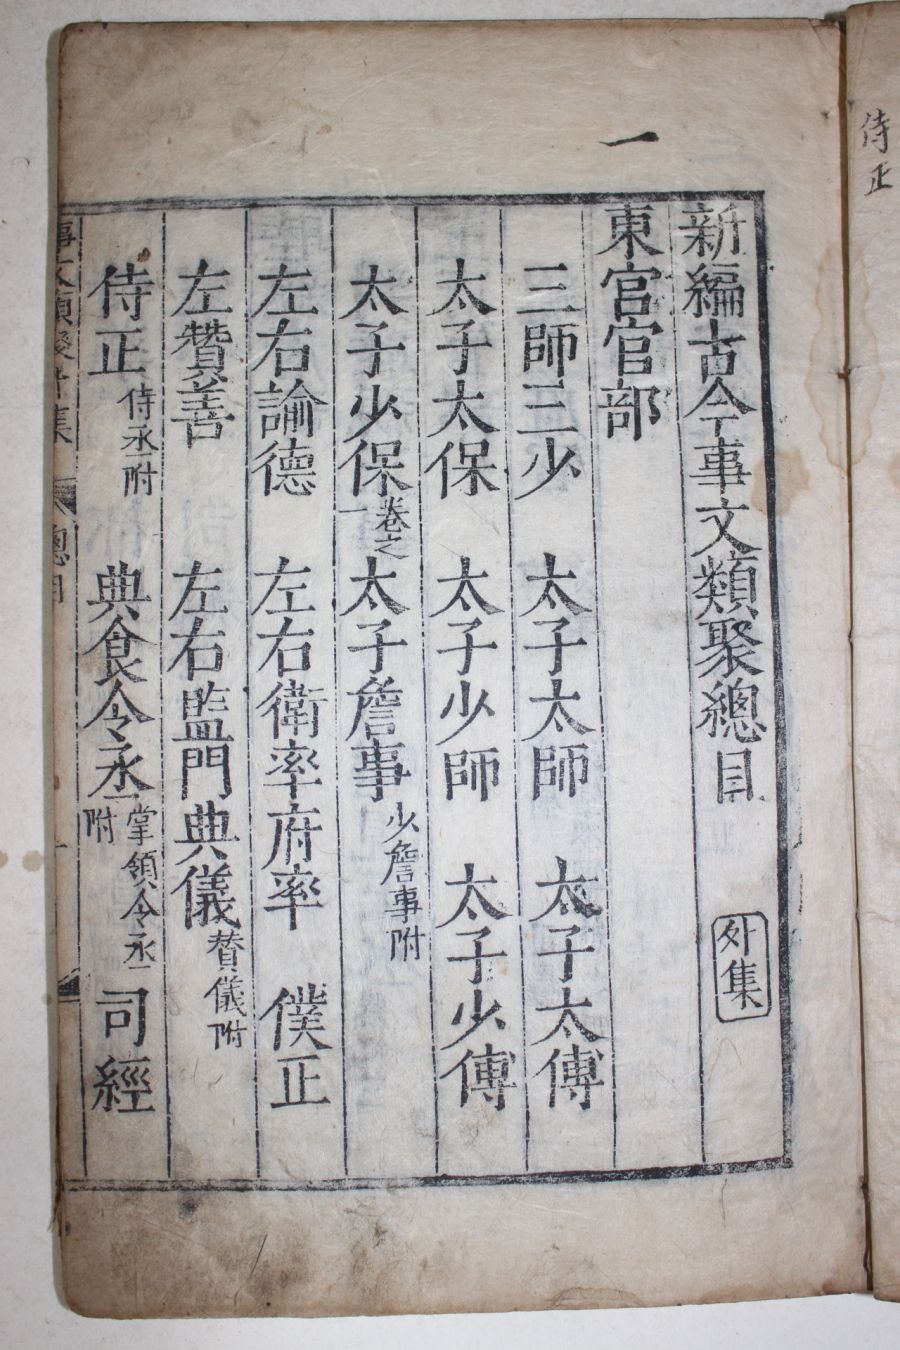 侍正
一
新編古今事文類聚總目 外集
東宮官部
三師三少 太子太師 太子太傅
太子太保 太子少師 太子少傅
太子少保卷之一 太子詹事少詹事附
左右諭德 左右衛率府率 僕正
左贊善 左右監門典儀贊儀附
侍正侍丞附 典食令丞掌領令丞附 司經
集 總目